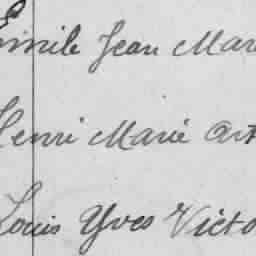 Emile Jean Mar
Henri Marie Art
Louis Yves Victo